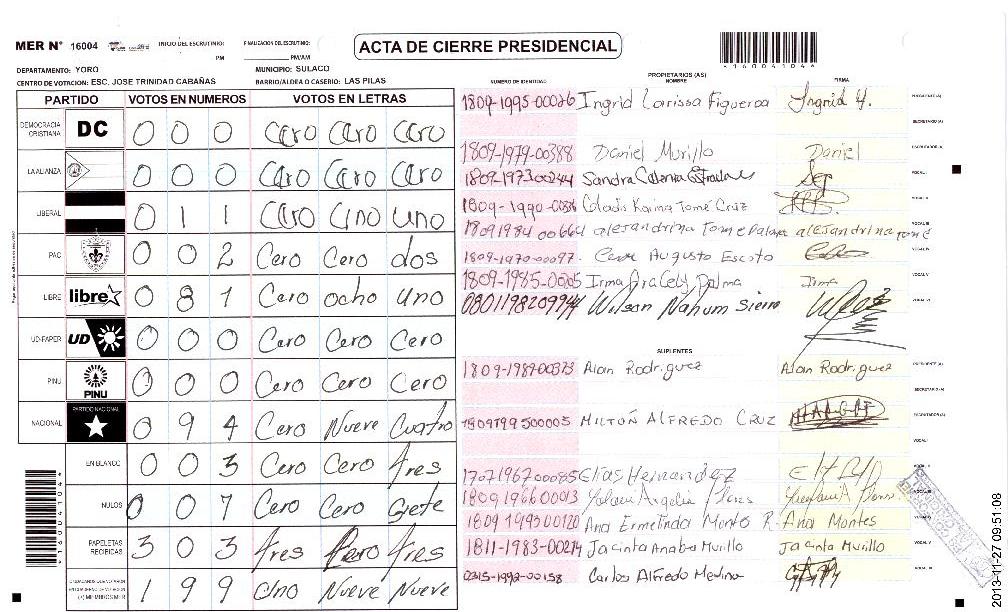 MER N° 16004 INICIO DEL ESCRUTINIO: FINALIZACION DEL ESCRUTINIO:
PM PM/AM
ACTA DE CIERRE PRESIDENCIAL
*16004104*
DEPARTAMENTO: YORO MUNICIPIO: SULACO
CENTRO DE VOTACION: ESC. JOSE TRINIDAD CABAÑAS BARRIO/ALDEA O CASERIO: LAS PILAS
PARTIDO VOTOS EN NUMEROS VOTOS EN LETRAS
DEMOCRACIA CRISTIANA DC 0 0 0 Cero Cero Cero
LA ALIANZA 0 0 0 Cero Cero Cero
LIBERAL 0 1 1 Cero Uno Uno
PAC 0 0 2 Cero Cero dos
LIBRE libre 0 8 1 Cero ocho uno
UD-FAPER UD 0 0 0 Cero Cero Cero
PINU PINU 0 0 0 Cero Cero Cero
NACIONAL PARTIDO NACIONAL 0 9 4 Cero Nueve Cuatro
EN BLANCO 0 0 3 Cero Cero tres
NULOS 0 0 7 Cero Cero Siete
PAPELETAS RECIBIDAS 3 0 3 tres Cero tres
1 9 9 Uno Nueve Nueve
*16004104*
NUMERO DE IDENTIDAD PROPIETARIOS (AS) NOMBRE FIRMA
1809-1995-00026 Ingrid Larissa Figueroa Ingrid H. PRESIDENTE (A)
SECRETARIO (A)
1809-1979-00388 Daniel Murillo Daniel ESCRUTADOR (A)
1809-1973 00244 Sandra VOCAL I
1809-1990- Gladis Karina Tomé Cruz VOCAL II
1809 1984 00664 alejandrina tome Palma alejandrina tome VOCAL III
1809-1970-00097. Cesar Augusto Escoto VOCAL IV
1809-1985-0005 Irma Aracely Palma Irma VOCAL V
0801198209944 Wilson Nahum Sierra VOCAL VI
SUPLENTES
1809-1989-00373 Alan Rodriguez Alan Rodriguez PRESIDENTE (A)
SECRETARIO (A)
1809199500005 MILTON ALFREDO CRUZ ESCRUTADOR (A)
VOCAL I
1707196700085 Elias Hernandez VOCAL II
1809 1966 00013 VOCAL III
1809 1993 00120 Ana Ermelinda Monto R. Ana Montes VOCAL IV
1811-1983-00214 Jacinta Anaba Murillo Jacinta Murillo VOCAL V
0315-1992-00158 Carlos Alfredo Medina VOCAL VI
2013-11-27 09:51:08